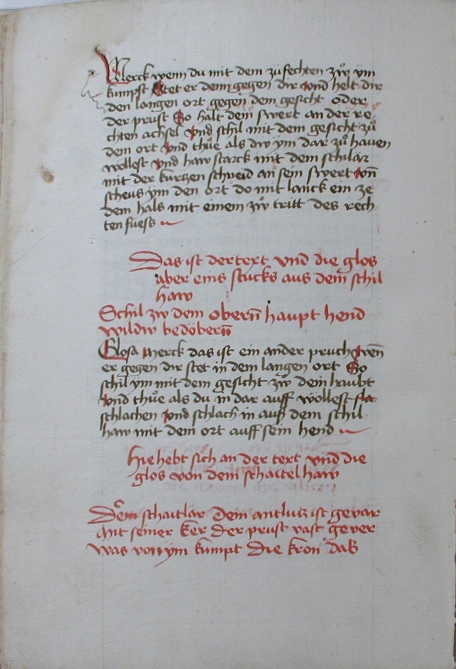 Merck wenn du mit dem zufechten zw ym
kumpst Stet er denn gegen dir vnd helt dir
den langen ort gegen dem gesicht oder
der prust So halt dein swert an der re
chten achsel vnd schil mit dem gesicht zu
dem ort vnd thue als dw ym dar zu hawen
wollest vnd haw starck mit dem schilär
mit der kurtzen schneid an sein swert vnd
scheus ym den ort do mit lanck ein ze
dem hals mit einem zw tritt des rech
ten fuess
Das ist der text vnd die glos
aber eins stucks aus dem schil
haw
Schil zw dem obern haupt hend
wildw bedöbern
Glosa Merck das ist ein ander pruch wen
er gegen dir stet in dem langen ort So
schil ym mit dem gesicht zw dem haubt
vnd thue als du in dar auff wollest sla
schlachen vnd schlach in auß dem schil
haw mit dem ort auff sein hend
Hie hebt sich an der text vnd die
glos von dem schaitelhaw
Dem schaitlär Dem antlutz ist gevar
Mit seiner ker der prust vast gever
was von ym kumpt Die kron das